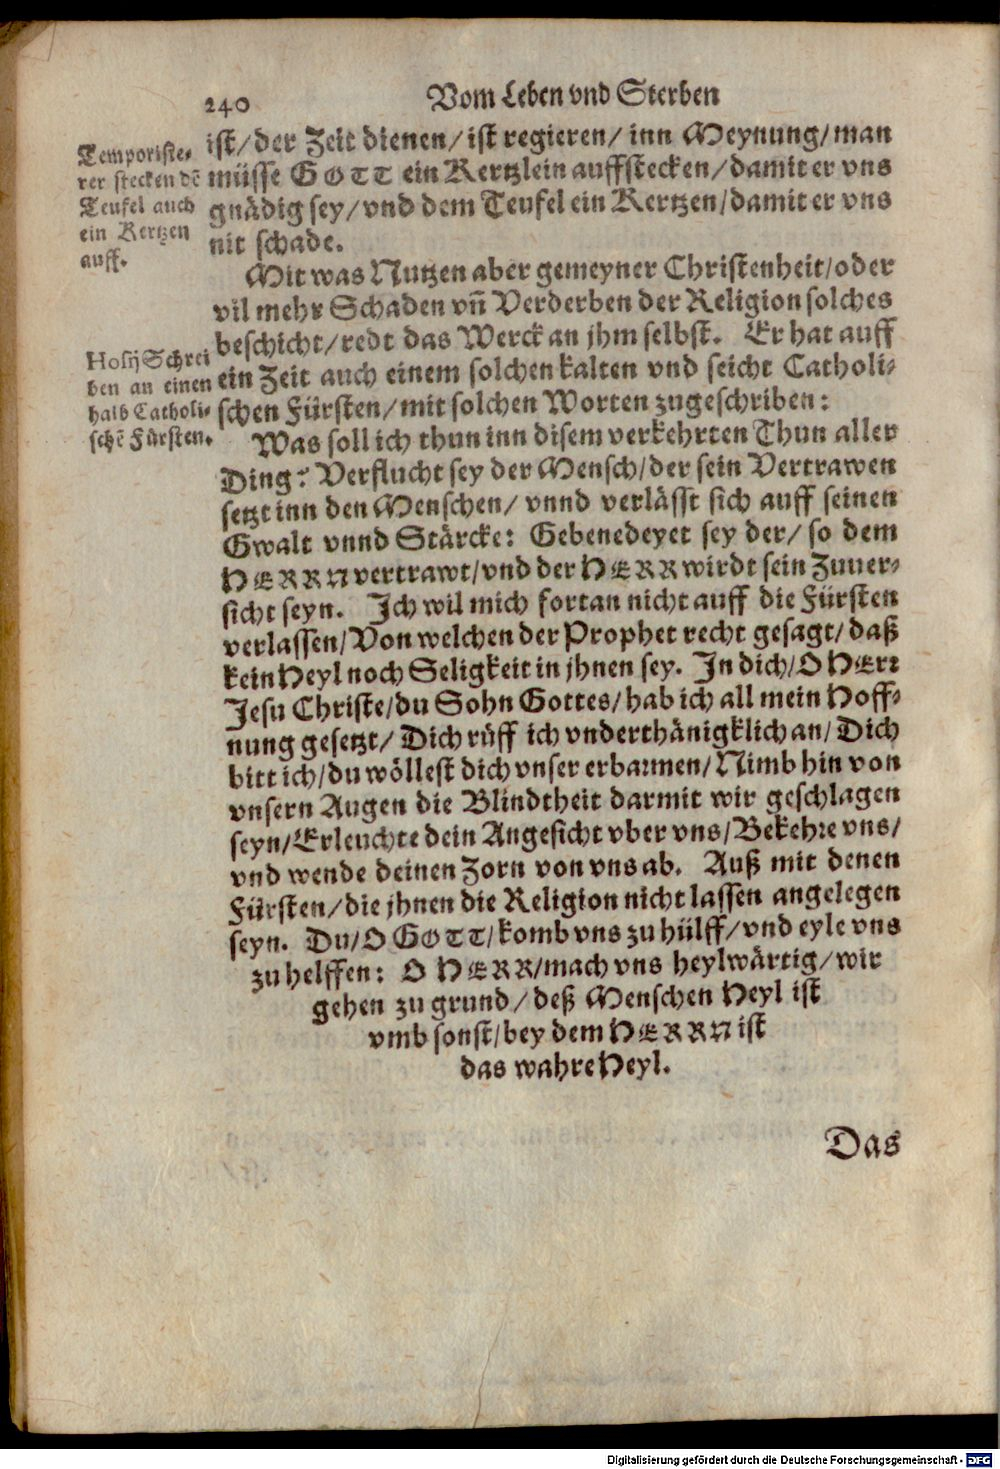 240 Vom Leben vnd Sterben
Temporiste-
rer stecken dē
Teufel auch
ein Kertzen
auff.
ist/ der Zeit dienen/ ist regieren/ inn Meynung/ man
müsse GOTT ein Kertzlein auffstecken/ damit er vns
gnädig sey/ vnd dem Teufel ein Kertzen/ damit er vns
nit schade.
Mit was Nutzen aber gemeyner Christenheit/ oder
vil mehr Schaden vn̄ Verderben der Religion solches
beschicht/ redt das Werck an jhm selbst. Er hat auff
ein Zeit auch einem solchen kalten vnd seicht Catholi-
schen Fürsten/ mit solchen Worten zugeschriben:
Hosij Schrei
ben an einen
halb Catholi-
schē Fürsten.
Was soll ich thun inn disem verkehrten Thun aller
Ding? Verflucht sey der Mensch/ der sein Vertrawen
setzt inn den Menschen/ vnnd verlässt sich auff seinen
Gwalt vnnd Stärcke: Gebenedeyet sey der/ so dem
HERRN vertrawt/ vnd der HERR wirdt sein Zuuer-
sicht seyn. Ich wil mich fortan nicht auff die Fürsten
verlassen/ Von welchen der Prophet recht gesagt/ daß
kein Heyl noch Seligkeit in jhnen sey. In dich/ O HErr
Jesu Christe/ du Sohn Gottes/ hab ich all mein Hoff-
nung gesetzt/ Dich rüff ich vnderthänigklich an/ Dich
bitt ich/ du wöllest dich vnser erbarmen/ Nimb hin von
vnsern Augen die Blindtheit darmit wir geschlagen
seyn/ Erleuchte dein Angesicht vber vns/ Bekehre vns/
vnd wende deinen Zorn von vns ab. Auß mit denen
Fürsten/ die jhnen die Religion nicht lassen angelegen
seyn. Du/ O GOTT/ komb vns zu hülff/ vnd eyle vns
zu helffen: O HERR/ mach vns heylwärtig/ wir
gehen zu grund/ deß Menschen Heyl ist
vmb sonst/ bey dem HERRN ist
das wahre Heyl.
Das
Digitalisierung gefördert durch die Deutsche Forschungsgemeinschaft - DFG